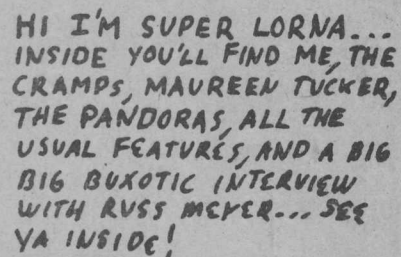 HI I'M SUPER LORNA...
INSIDE YOU'LL FIND ME, THE
CRAMPS, MAUREEN TUCKER,
THE PANDORAS, ALL THE
USUAL FEATURES, AND A BIG
BIG BUXOTIC INTERVIEW
WITH RUSS MEYER... SEE
YA INSIDE!